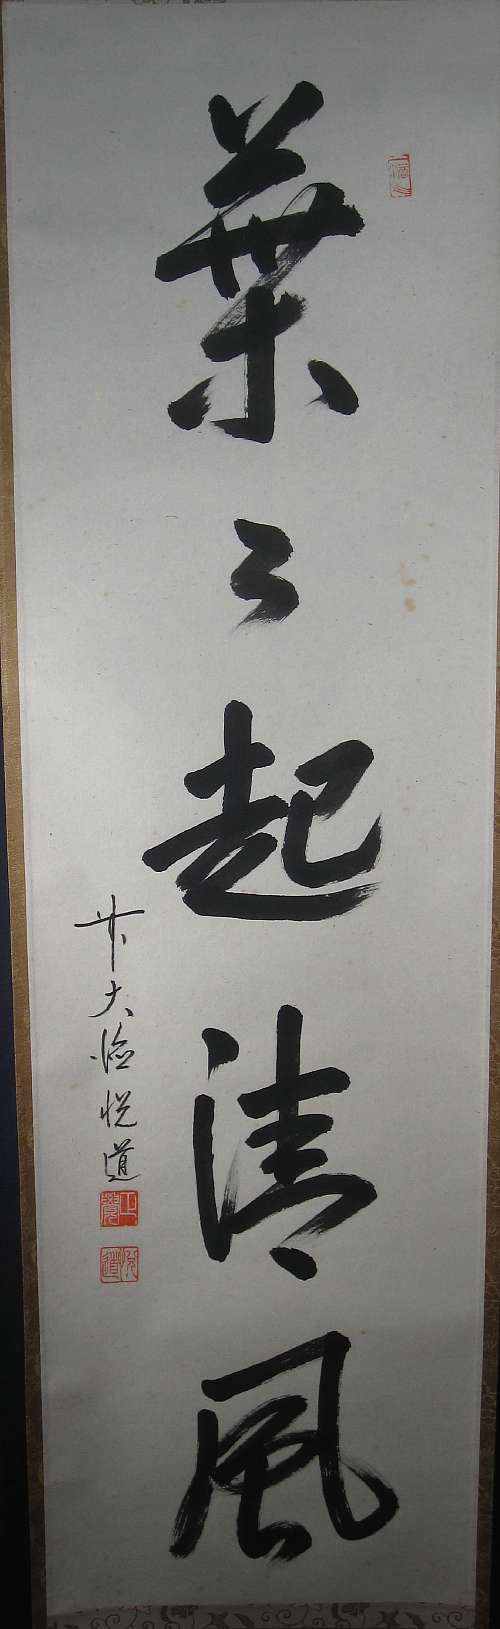 葉々起清風
大徳悦道